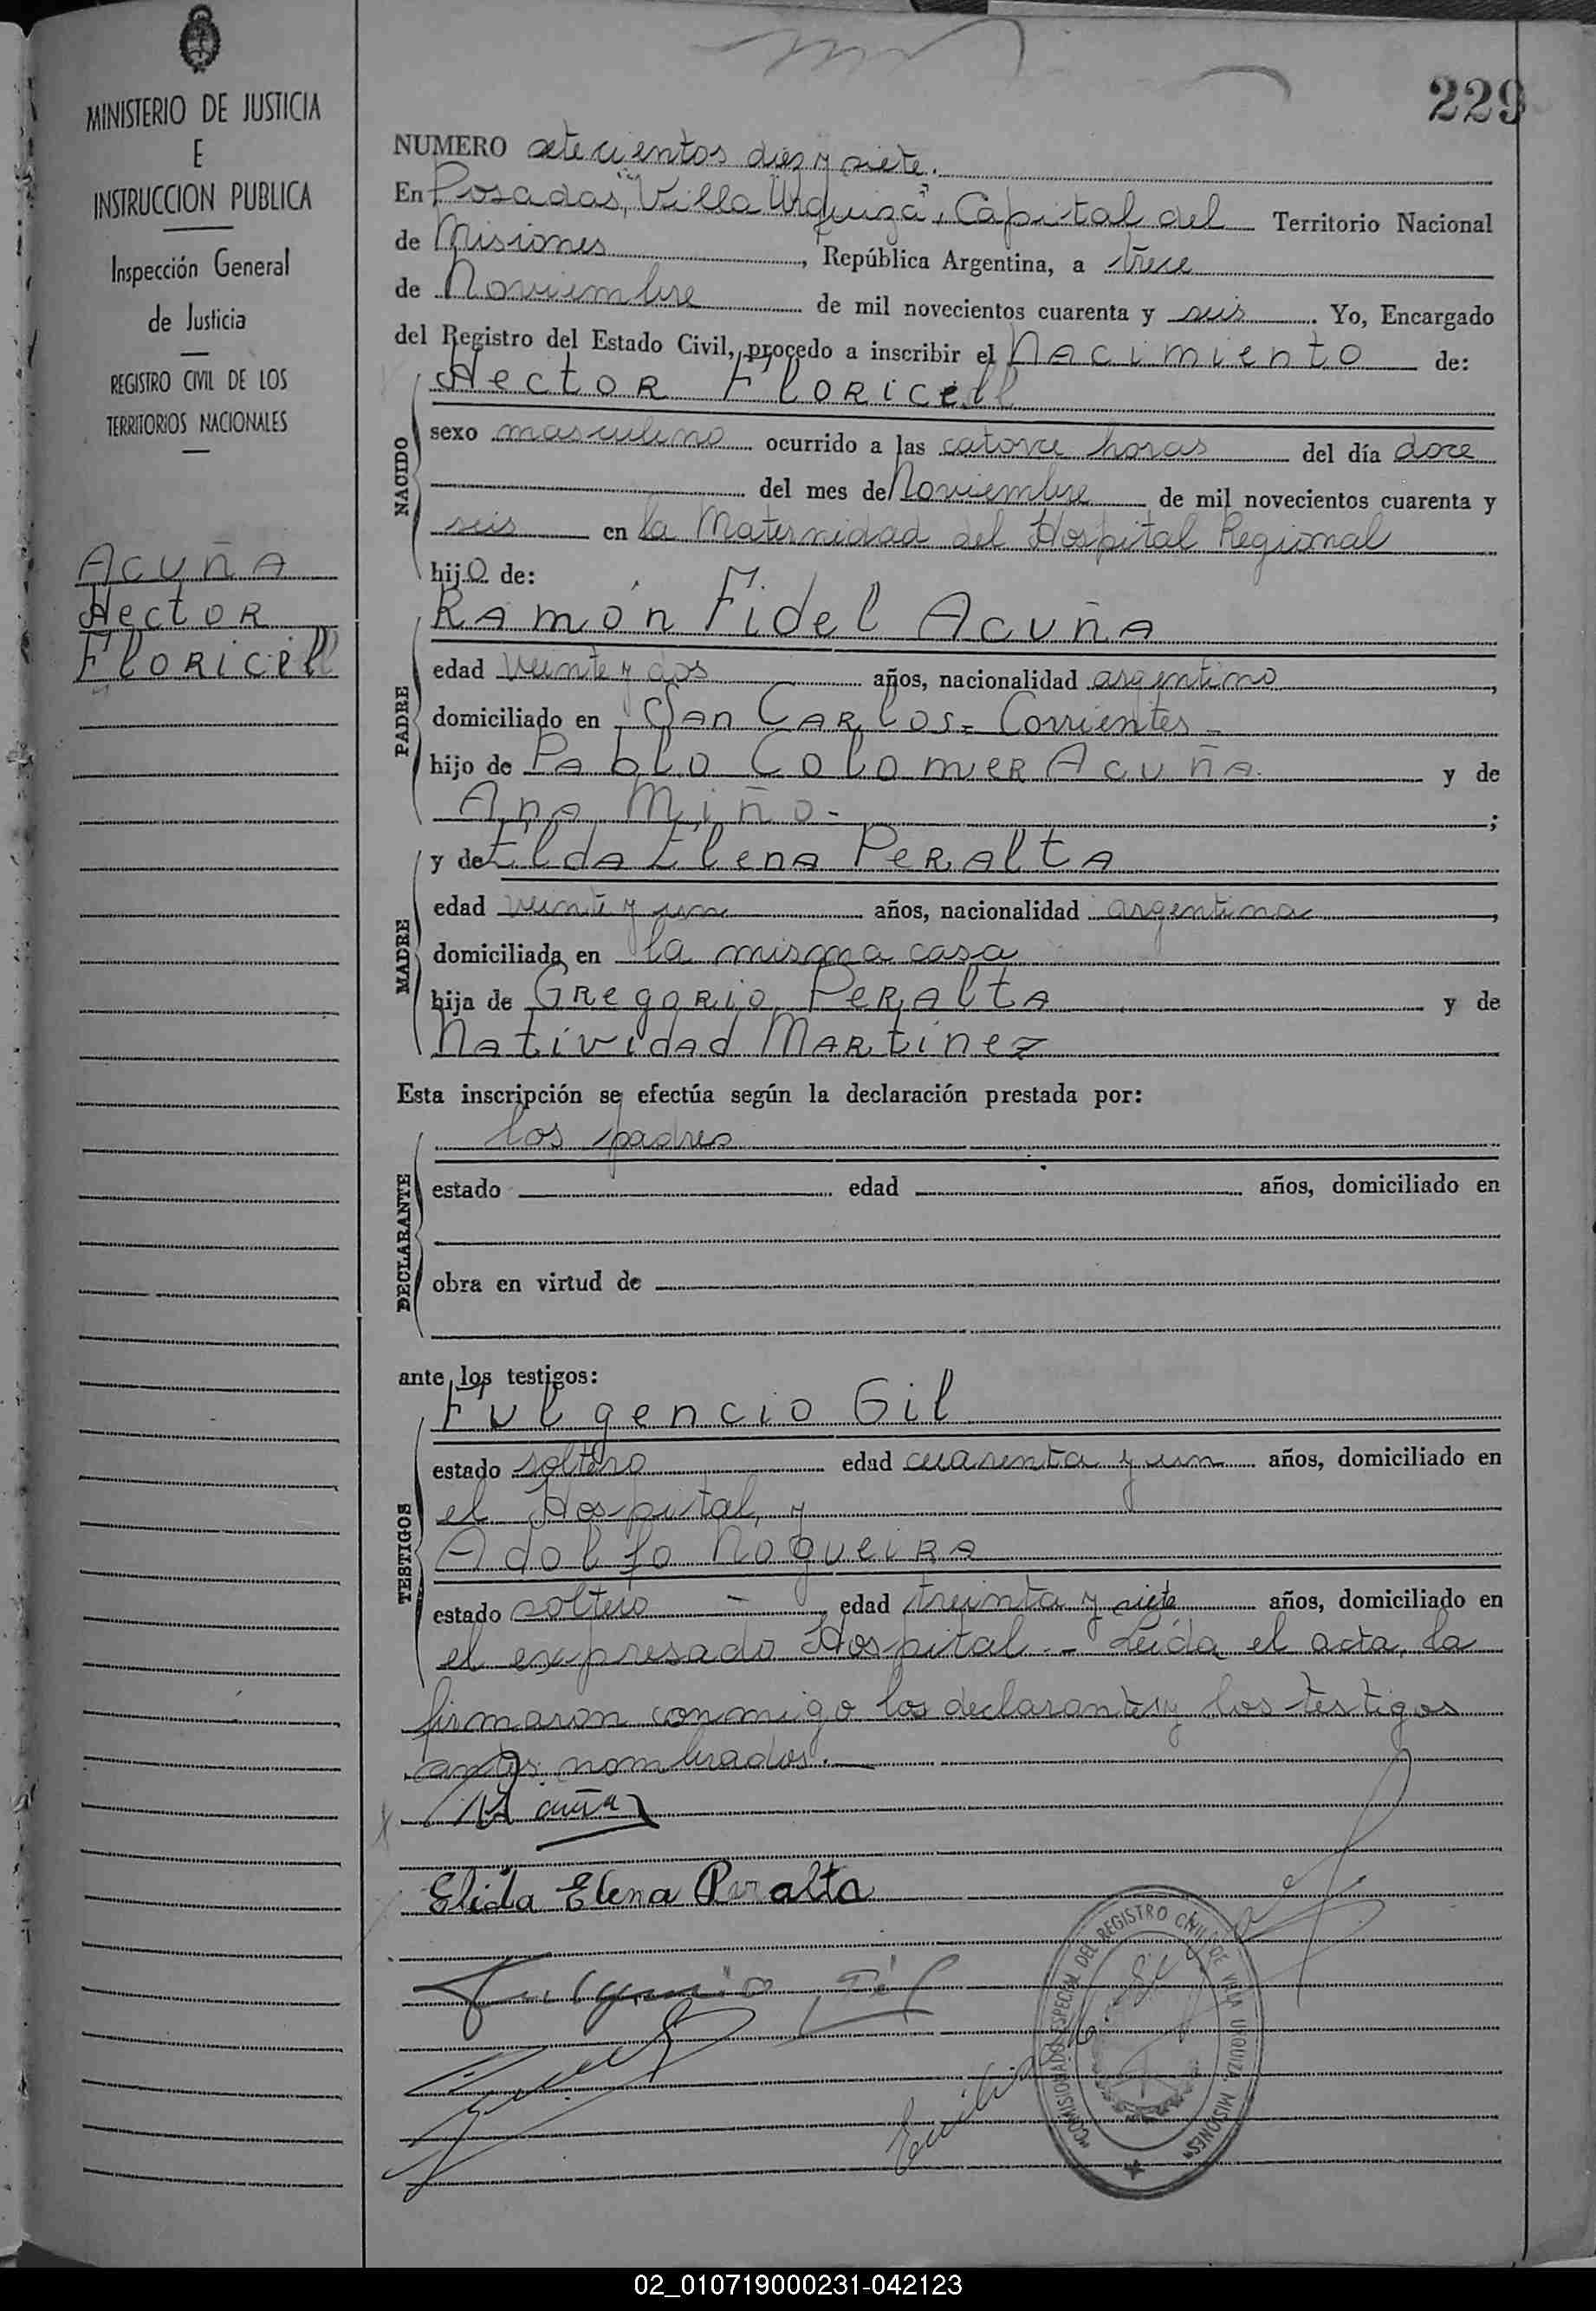 MINISTERIO DE JUSTICIA
E
INSTRUCCION PUBLICA
Inspección General
de Justicia
REGISTRO CIVIL DE LOS
TERRITORIOS NACIONALES
Acuña
Hector
Floricel
229
NUMERO setecientos diez y siete.
En Posadas, "Villa Urquiza", Capital del Territorio Nacional
de Misiones, República Argentina, a trece
de Noviembre de mil novecientos cuarenta y seis. Yo, Encargado
del Registro del Estado Civil, procedo a inscribir el Nacimiento de:
Hector Floricel
NACIDO
sexo masculino ocurrido a las catorce horas del día doce
del mes de Noviembre de mil novecientos cuarenta y
seis en la Maternidad del Hospital Regional
hijo de:
Ramón Fidel Acuña
PADRE
edad veinte y dos años, nacionalidad argentino,
domiciliado en San Carlos = Corrientes -
hijo de Pablo Colomer Acuña y de
Ana Miño - ;
y de Elda Elena Peralta
MADRE
edad veinte y un años, nacionalidad argentina,
domiciliada en la misma casa
hija de Gregorio Peralta y de
Natividad Martinez
Esta inscripción se efectúa según la declaración prestada por:
los padres
DECLARANTE
estado edad años, domiciliado en
obra en virtud de
ante los testigos:
Fulgencio Gil
TESTIGOS
estado soltero edad cuarenta y un años, domiciliado en
el Hospital, y
Adolfo Nogueira
estado soltero - edad treinta y siete años, domiciliado en
el expresado Hospital. - Leída el acta, la
firmaron conmigo los declarantes y los testigos
antes nombrados.
Acuña
Elida Elena Peralta
Fulgencio Gil
COMISIONADO ESPECIAL DEL REGISTRO CIVIL DE VILLA URQUIZA, MISIONES
02_010719000231-042123